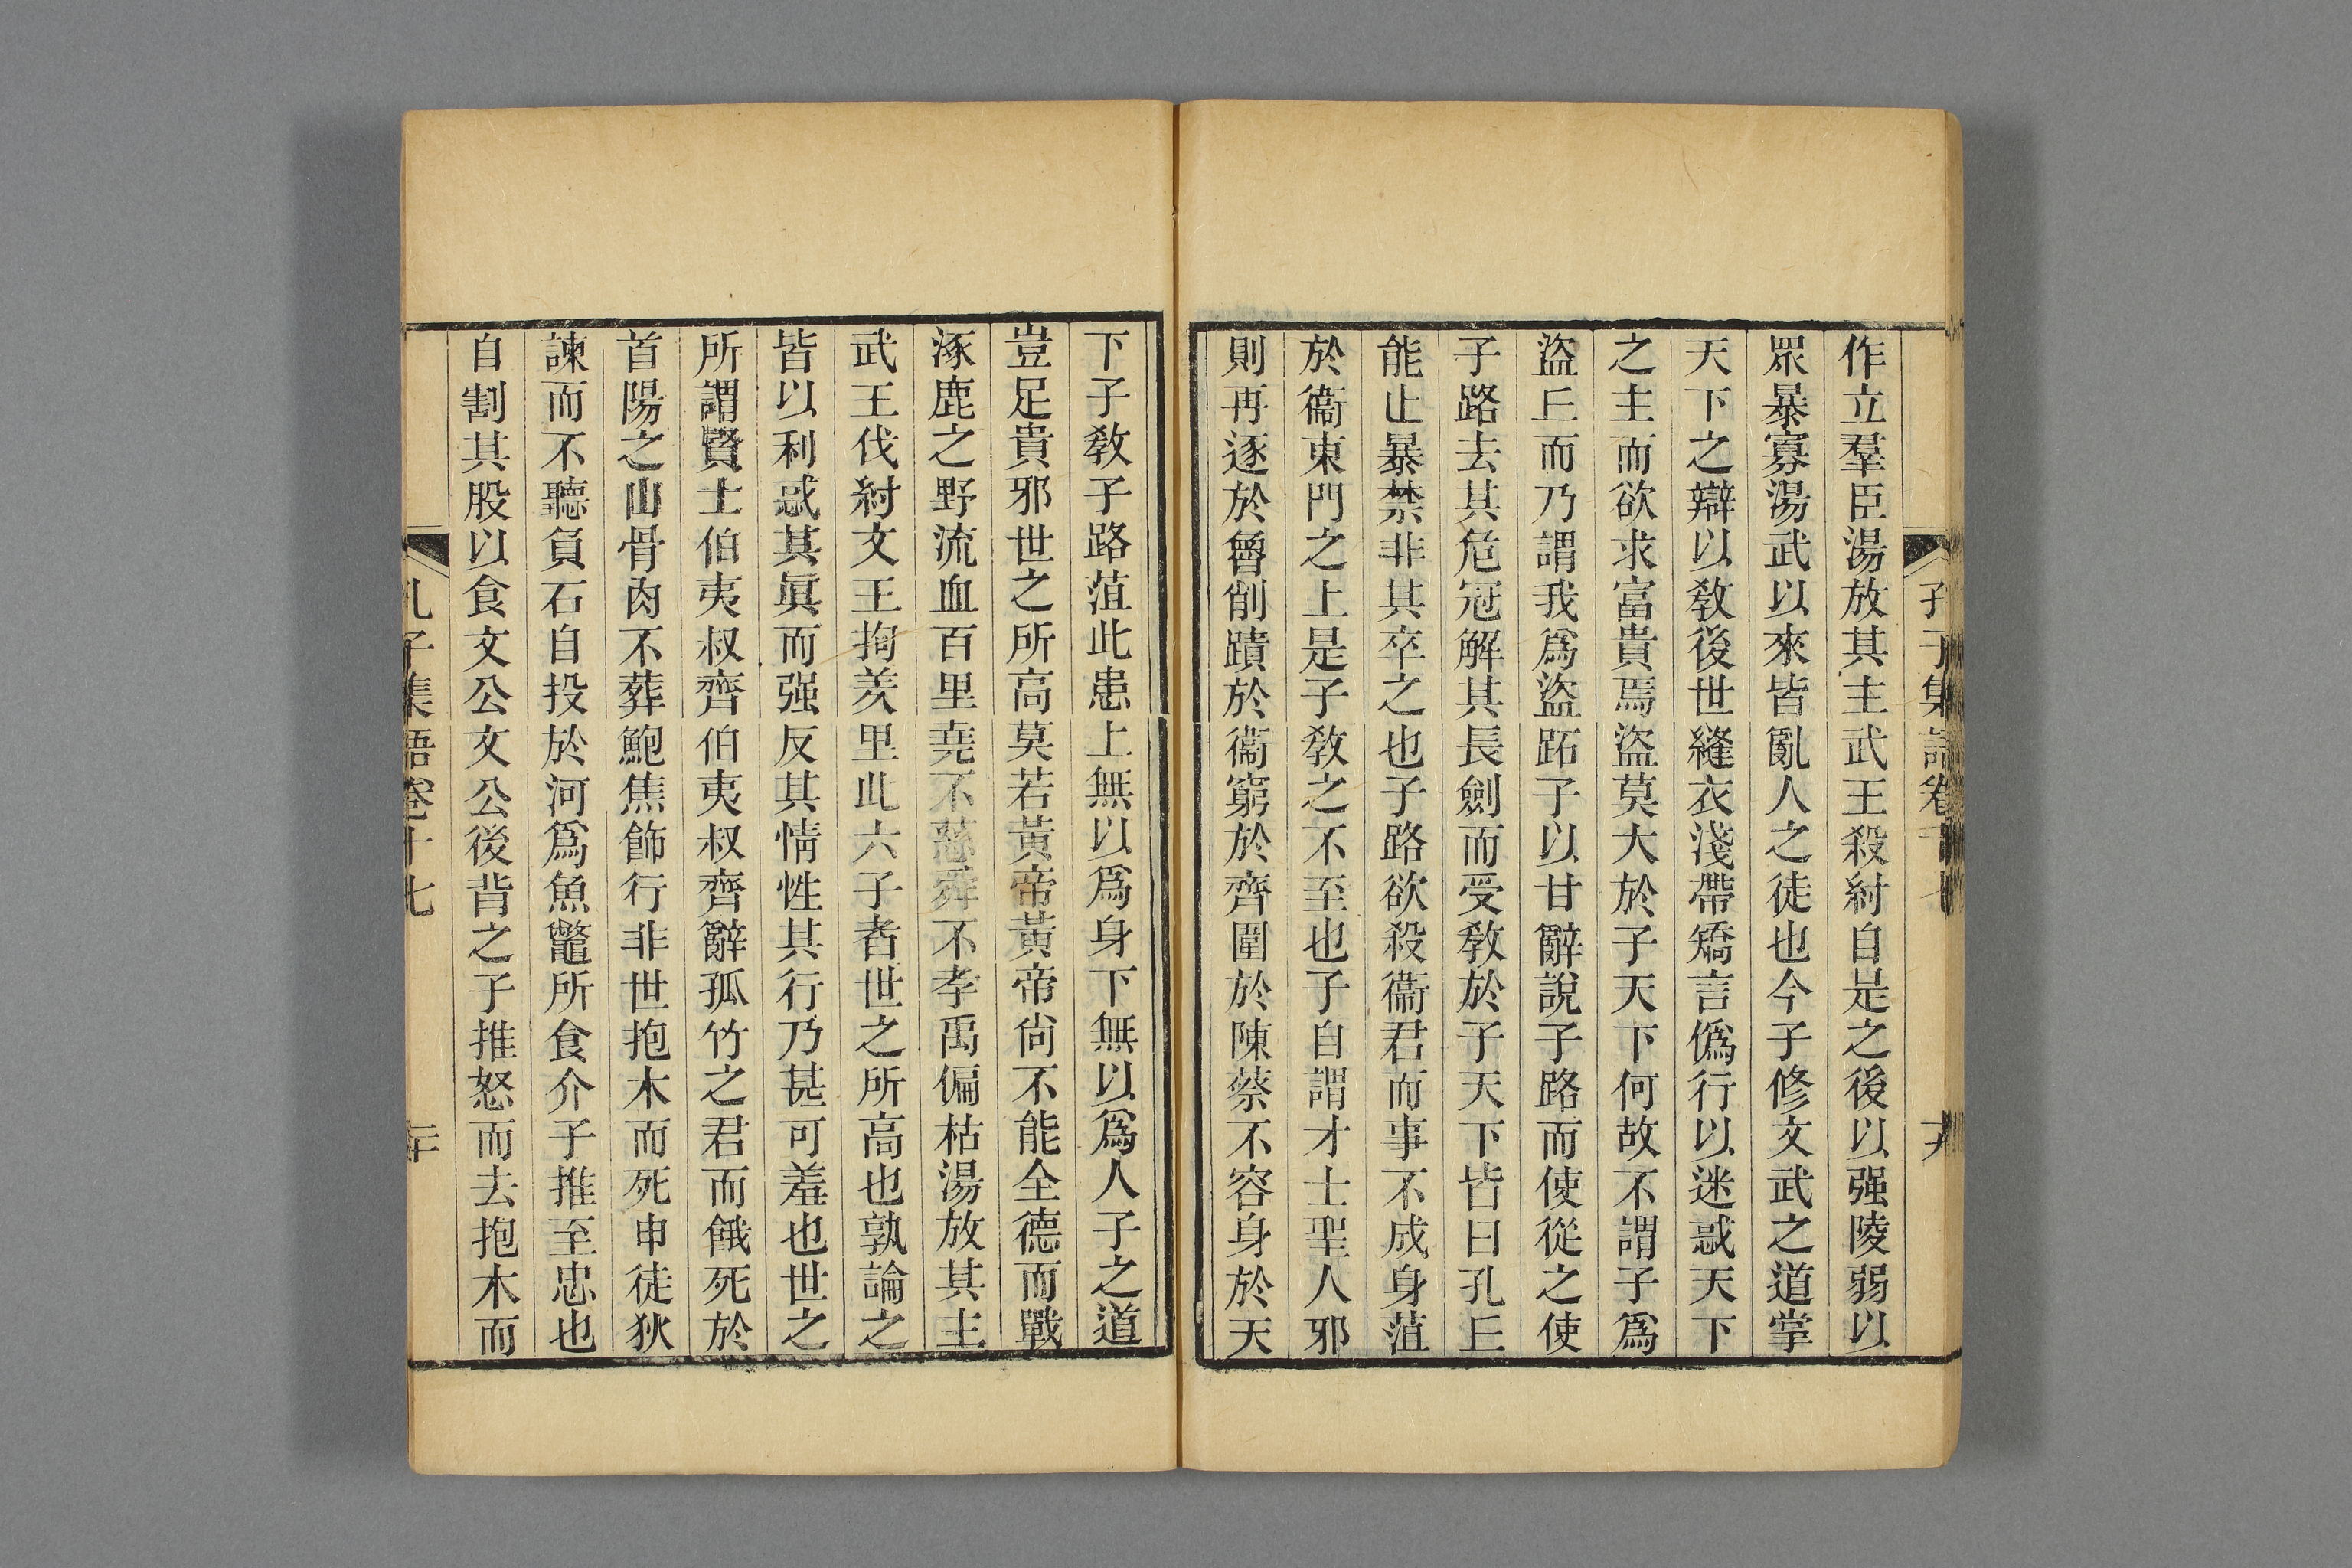 孔子集語卷十七
十九
作立羣臣湯放其主武王殺紂自是之後以强陵弱以
眾暴寡湯武以來皆亂人之徒也今子修文武之道掌
天下之辯以敎後世縫衣淺帶矯言僞行以迷惑天下
之主而欲求富貴焉盜莫大於子天下何故不謂子爲
盜𠀉而乃謂我爲盜跖子以甘辭說子路而使從之使
子路去其危冠解其長劍而受敎於子天下皆曰孔𠀉
能止暴禁非其卒之也子路欲殺衞君而事不成身菹
於衞東門之上是子敎之不至也子自謂才士聖人邪
則再逐於魯削蹟於衞窮於齊圍於陳蔡不容身於天
下子敎子路菹此患上無以爲身下無以爲人子之道
豈足貴邪世之所高莫若黃帝黃帝尙不能全德而戰
涿鹿之野流血百里堯不慈舜不孝禹偏枯湯放其主
武王伐紂文王拘羑里此六子者世之所高也孰論之
皆以利惑其眞而强反其情性其行乃甚可羞也世之
所謂賢士伯夷叔齊伯夷叔齊辭孤竹之君而餓死於
首陽之山骨肉不葬鮑焦飾行非世抱木而死申徒狄
諫而不聽負石自投於河爲魚鼈所食介子推至忠也
自割其股以食文公文公後背之子推怒而去抱木而
孔子集語卷十七
二十